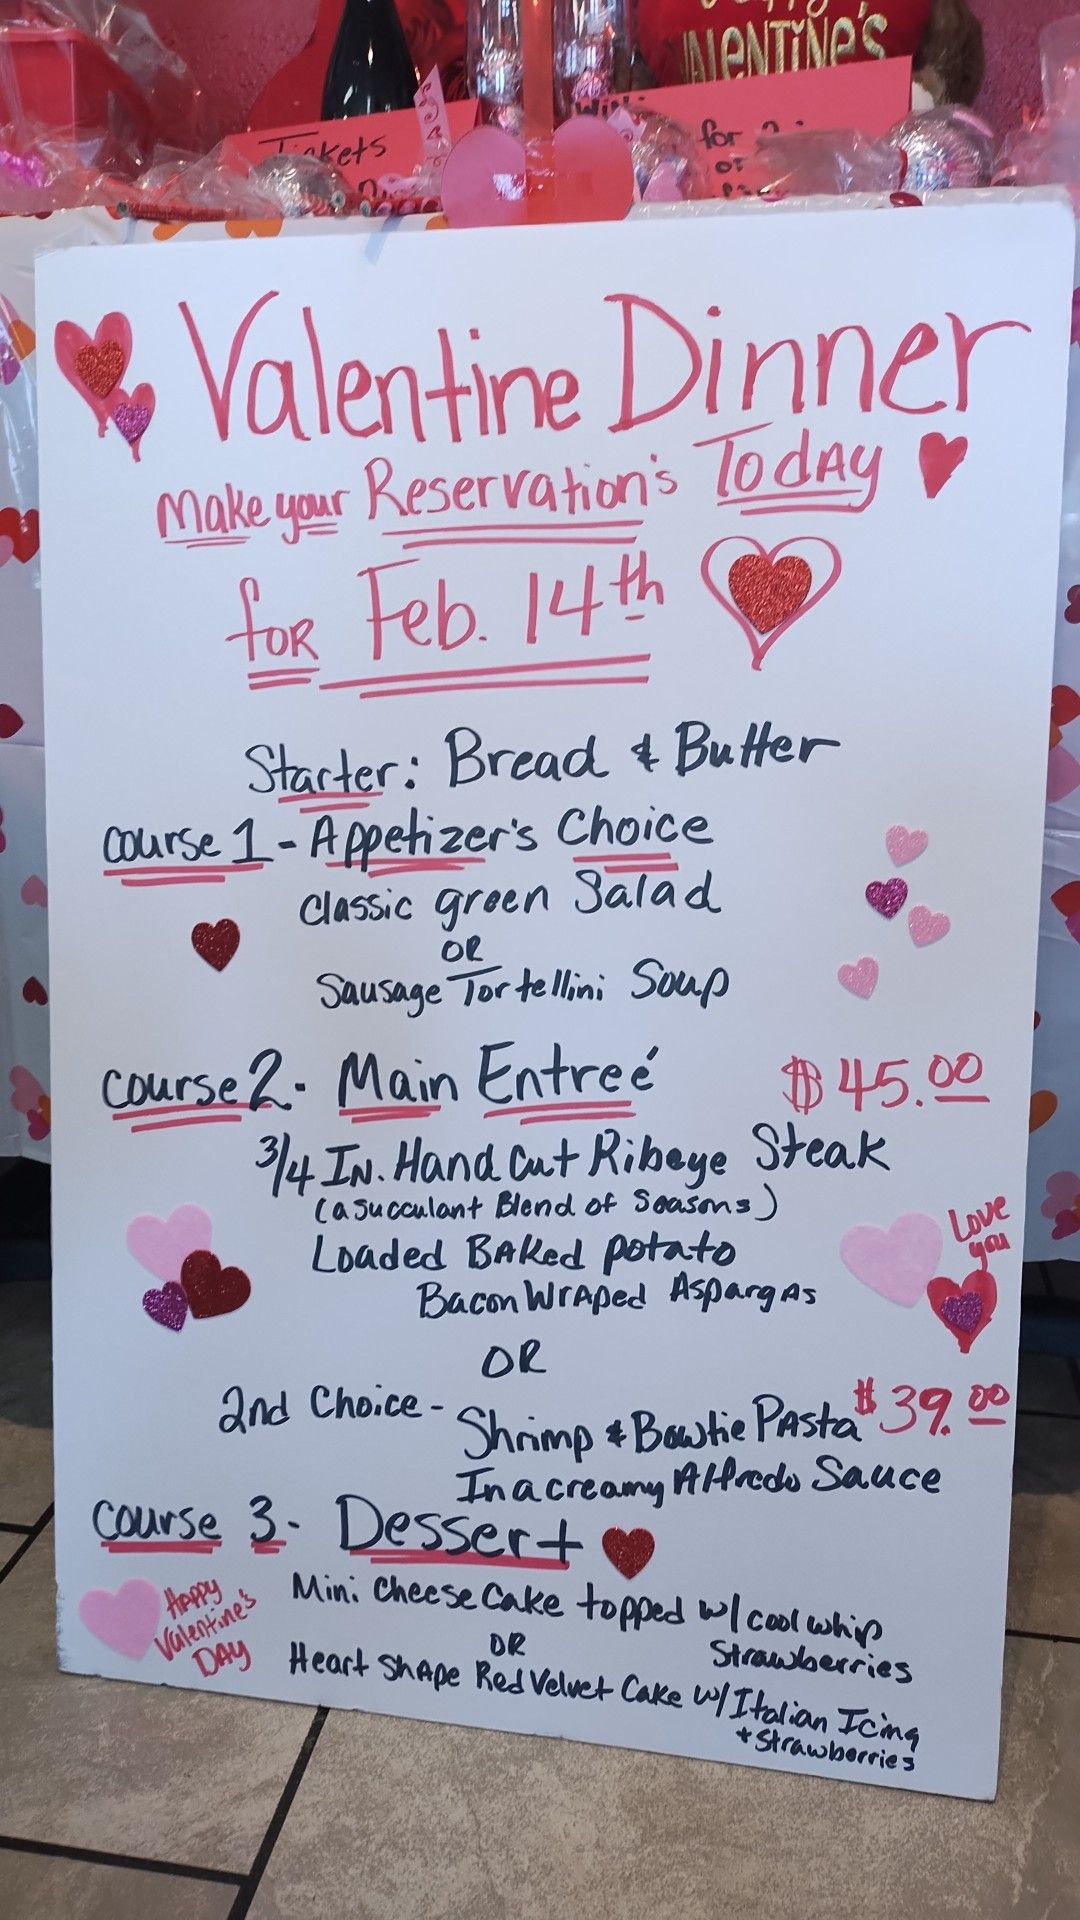 VALENTiNE's
Tickets
for
or
Valentine Dinner
Make your Reservation's Today
for Feb. 14th
Starter: Bread & Butter
course 1 - Appetizer's Choice
classic green Salad
OR
Sausage Tortellini Soup
course 2 - Main Entreé $45.00
3/4 IN. Hand Cut Ribeye Steak
(a succulant Blend of Seasons)
Love
you
Loaded Baked potato
Bacon Wraped Aspargas
OR
2nd Choice - Shrimp & Bowtie Pasta $39.00
In a creamy Alfredo Sauce
course 3 - Dessert
Happy
Valentine's
Day
Mini Cheese Cake topped w/ cool whip
Strawberries
OR
Heart Shape Red Velvet Cake w/ Italian Icing
+ Strawberries